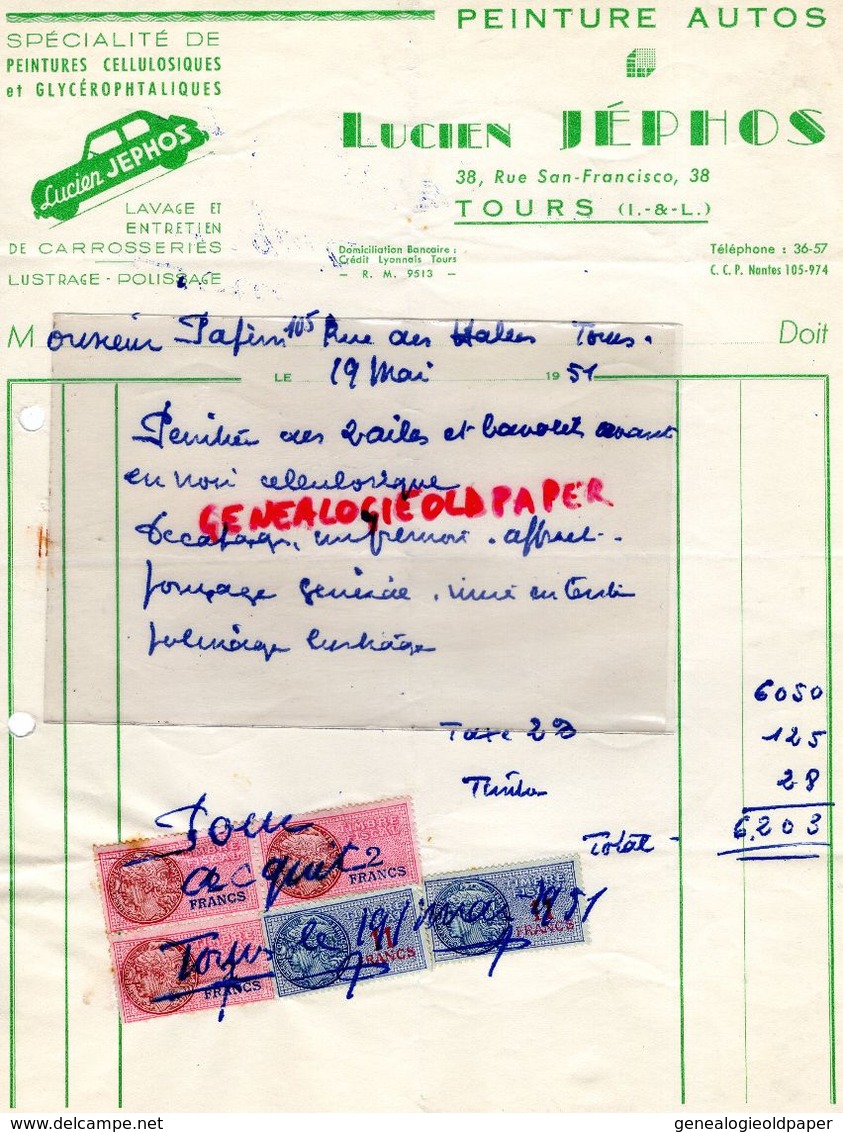 PEINTURE AUTOS
SPÉCIALITÉ DE
PEINTURES CELLULOSIQUES
et GLYCÉROPHTALIQUES
Lucien JEPHOS
LUCIEN JÉPHOS
38, Rue San-Francisco, 38
TOURS (I.-&-L.)
LAVAGE ET
ENTRETIEN
DE CARROSSERIES
LUSTRAGE - POLISSAGE
Domiciliation Bancaire :
Crédit Lyonnais Tours
— R. M. 9513 —
Téléphone : 36-57
C. C. P. Nantes 105-974
Monsieur 105 Rue des Halles Tours. Doit
LE 19 Mai 1951
des 2 ailes et bavolet avant
en noir
GENEALOGIEOLDPAPER
générale
6050
Taxe 125
Timbre 28
Total - 6.203
Pour
acquit
Tours le 19 mai 1951
TIMBRE FISCAL
FRANCS
TIMBRE FISCAL
2 FRANCS
FRANCS
11 FRANCS
FRANCS
genealogieoldpaper
delcampe.net
genealogieoldpaper